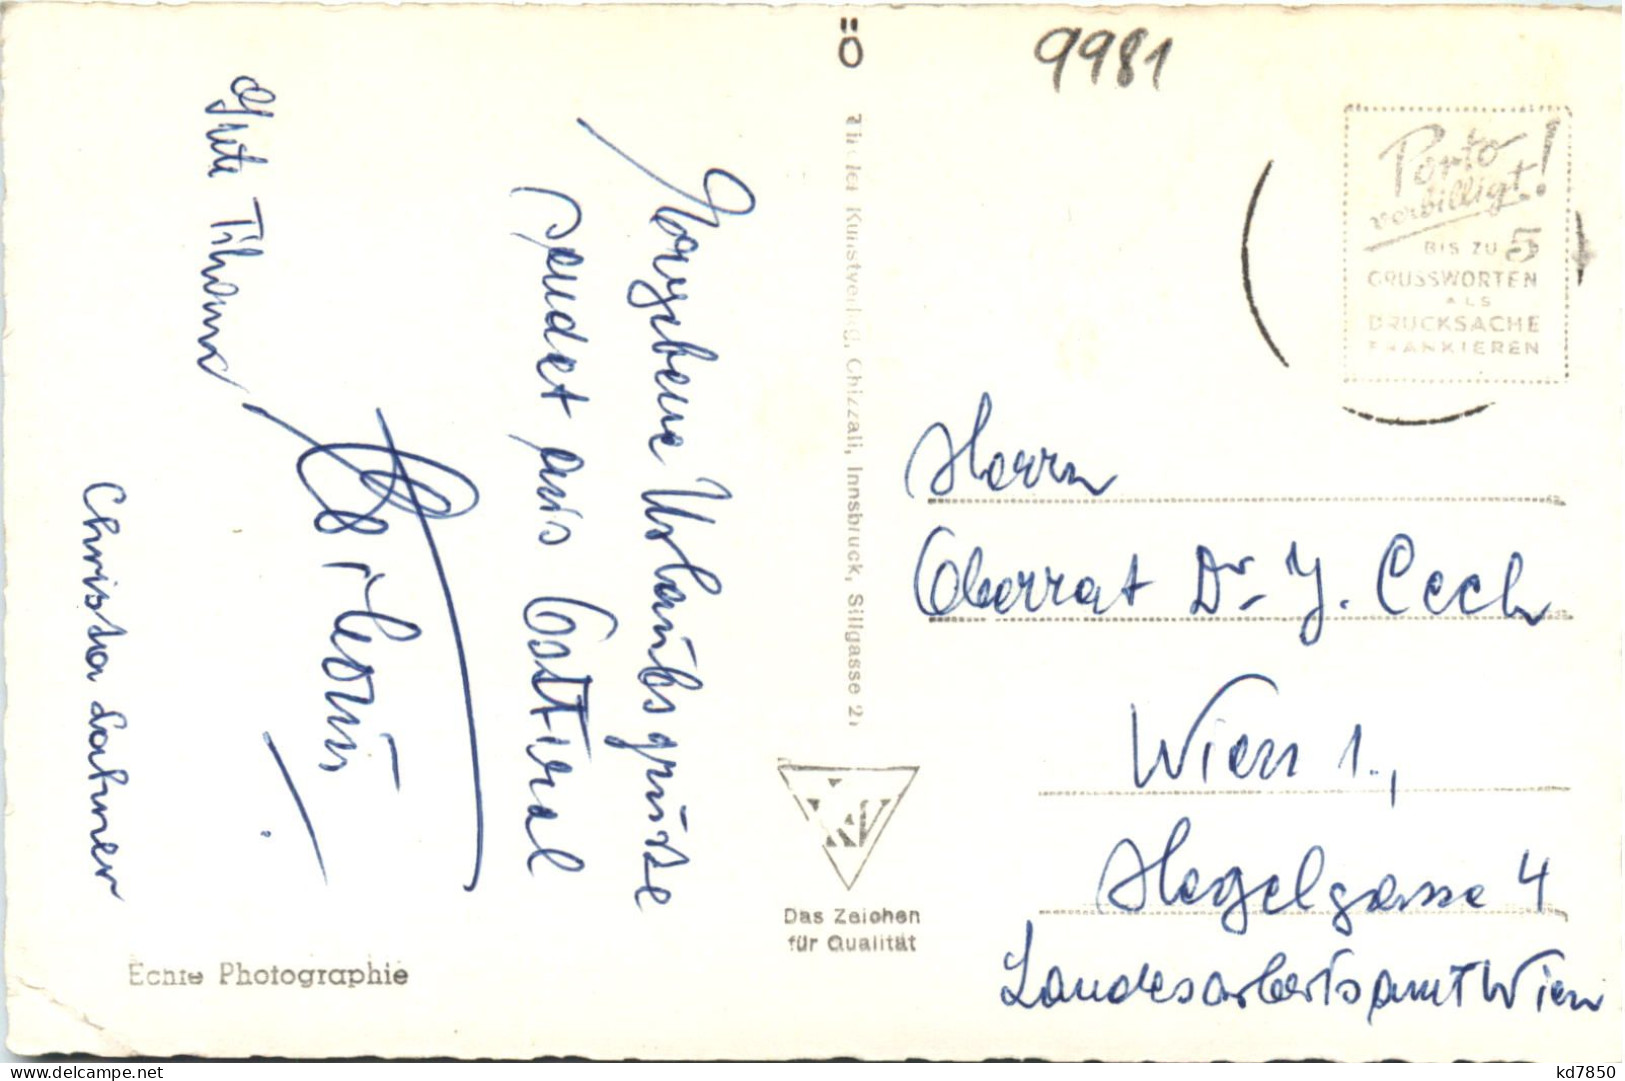 Ergebene Urlaubsgrüsse
sendet aus Osttirol
Grete
Christa Lahner
Echte Photographie
Ö
Tiroler Kunstverlag, Chizzali, Innsbruck, Sillgasse 21
Das Zeichen
für Qualität
9981
Porto
verbilligt!
BIS ZU 5
GRUSSWORTEN
ALS
DRUCKSACHE
FRANKIEREN
Herrn
Oberrat Dr. J. Cech
Wien 1.,
Hegelgasse 4
Landesarbeitsamt Wien
kd7850